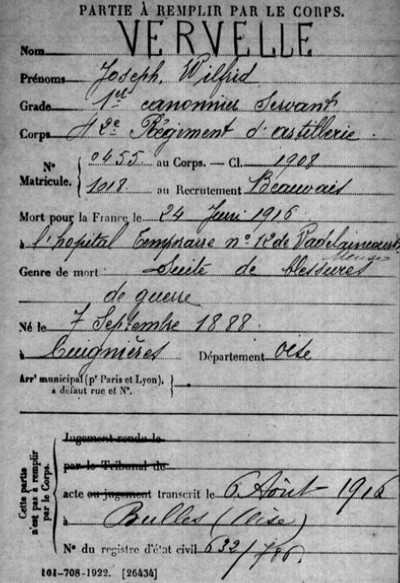 PARTIE À REMPLIR PAR LE CORPS.
Nom VERVELLE
Prénoms Joseph, Wilfrid
Grade 1er canonnier servant
Corps 42e Régiment d'artillerie
N° Matricule. { 0455 au Corps. — Cl. 1908
1018 au Recrutement Beauvais
Mort pour la France le 24 Juin 1916
à l'hopital Temporaire n° 12 de Vadelaincourt
Meuse
Genre de mort Suite de blessures
de guerre
Né le 7 Septembre 1888
à Cuignières Département Oise
Arr' municipal (p' Paris et Lyon),
à défaut rue et N°.
Cette partie n'est pas à remplir par le Corps.
Jugement rendu le
par le Tribunal de
acte ou jugement transcrit le 6 Août 1916
à Bulles (Oise)
N° du registre d'état civil 632/
101-708-1922. [26434]